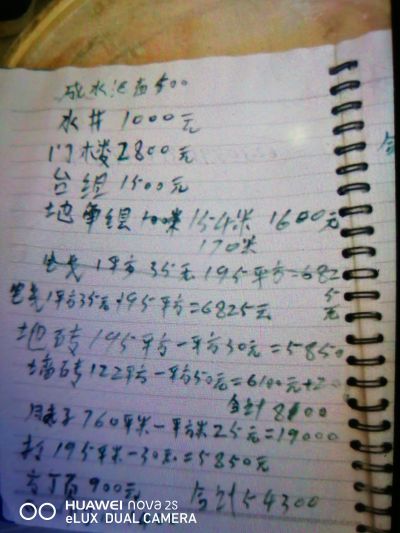 水泥面500
水井 1000元
门楼2800元
台组 1500元
地 组 100米 154米 1600元
170米
电气 1平方 35元 195平方=682
5
元
电气1平方35元195平方=6825元
地砖 195平方一平方30元=5850
墙砖122平方一平方50元=6100元+2
合计 8100
760平米一平方米25元=19000
195平米一30元=5850元
900元 合计54300
HUAWEI nova 2s
eLUX DUAL CAMERA